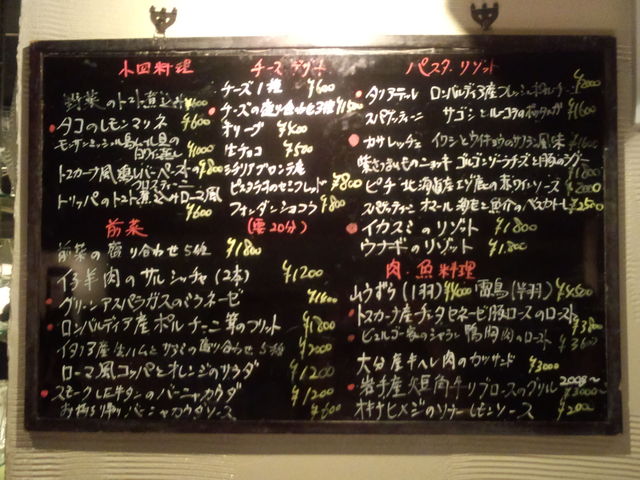 小皿料理
野菜のトマト煮込み
タコのレモンマリネ ¥600
モンサンミッシェル ムール貝の
白ワイン蒸し ¥1000
トスカーナ風 鶏レバーペースト ¥800
クロスティーニ
トリッパのトマト煮込み ローマ風
¥600
前菜
前菜の盛り合わせ 5種 ¥1800
仔羊肉のサルシッチャ(2本) ¥1200
グリーンアスパラガスのビスマネーゼ ¥1600
ロンバルディア産 ポルチーニ茸のフリット ¥1800
イタリア産 生ハムとサラミの盛り合わせ 5種 ¥2000
ローマ風コッパとオレンジのサラダ ¥1200
スモークした牛タンのバーニャカウダ ¥1200
バーニャカウダソース ¥600
チーズ・デザート
チーズ1種 ¥600
チーズの盛り合わせ3種 ¥1500
オリーブ ¥400
生チョコ ¥500
シチリアブロンテ産
ピスタチオのセミフレッド ¥800
フォンダンショコラ ¥800
(要20分)
パスタ・リゾット
タリアテッレ ロンバルディア産フレッシュポルチーニ
スパゲッティーニ サゴシとルーコラの
カサレッチェ イワシとウイキョウのシチリア風味 ¥1600
ゴルゴンゾーラチーズと
ピチ 北海道産エゾ鹿の赤ワインソース ¥2000
スパゲッティーニ オマール海老と魚介のペスカトーレ ¥2500
イカスミのリゾット ¥1800
ウナギのリゾット ¥1,800
肉・魚料理
山ウズラ(1羽) ¥4000 雷鳥(半羽) ¥4500
トスカーナ産チンタセネーゼ豚ロースのロースト ¥3800
ビュルゴー家のシャラン鴨 胸肉のロースト ¥3600
大分産牛ヘレ肉のカツサンド ¥3000
岩手産短角牛リブロースのグリル 200g〜 ¥3000〜
オキナヒメジのソテー レモンソース ¥2200